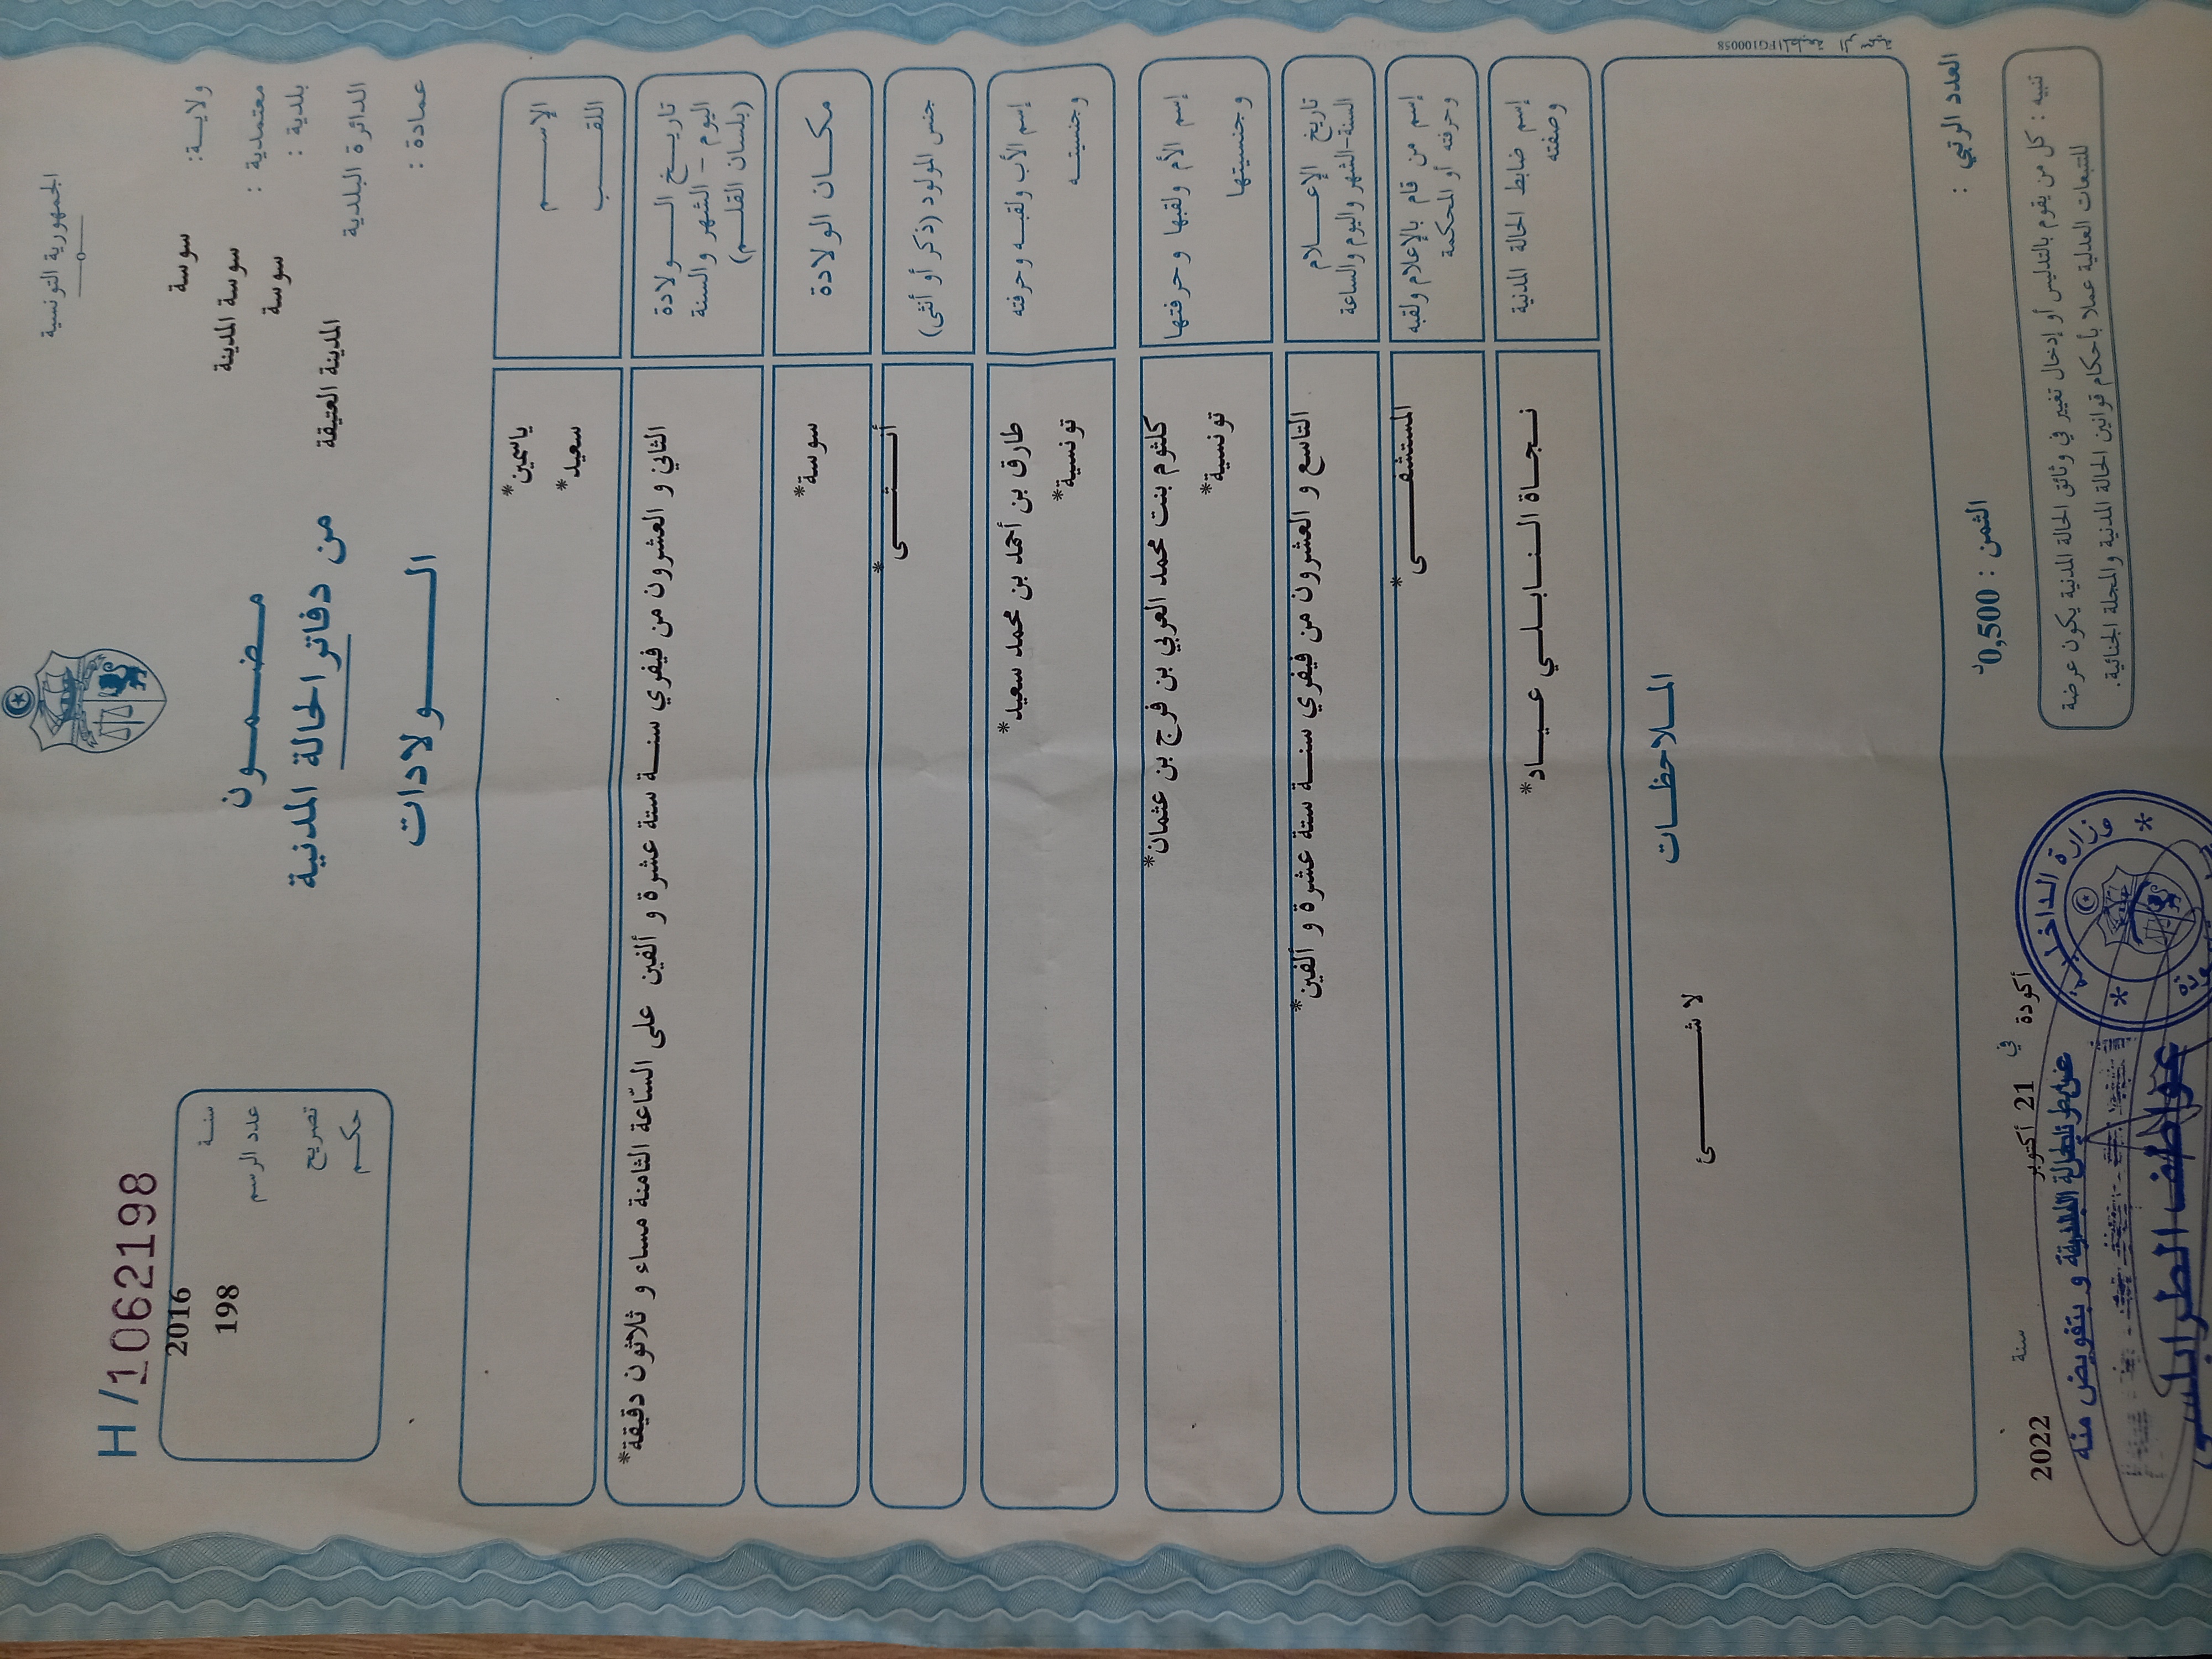 الجمهورية التونسية
ولايـــة: سوسة
معتمدية : سوسة المدينة
بلدية : سوسة
الدائرة البلدية المدينة العتيقة
عمادة :
مـضـمـون
من دفاتر الحالة المدنية
الـــولادات
H/1062198
سنـة 2016
عدد الرسم 198
تصريح
حكـم
الإســـم ياسمين*
اللقـــب سعيد*
تاريـــخ الــــولادة
اليوم - الشهر والسنة
(بلسان القلــم)
الثاني و العشرون من فيفري سنــة ستة عشرة و ألفين على السّاعة الثامنة مساء و ثلاثون دقيقة*
مكـــان الولادة سوسة*
جنس المولود (ذكر أو أنثى) أنــثــى*
إسم الأب ولقبـه وحرفته طارق بن أحمد بن محمد سعيد*
وجنسيتــه تونسية*
إسم الأم ولقبها وحرفتها كلثوم بنت محمد العربي بن فرج بن عثمان*
وجنسيتها تونسية*
تاريخ الإعـــلام
السنة-الشهر واليوم والساعة
التاسع و العشرون من فيفري سنــة ستة عشرة و ألفين*
إسم من قام بالإعلام ولقبه
وحرفته أو المحكمة
المستشفــــى*
إسم ضابط الحالة المدنية
وصفته
نـجـاة الـنـابـلـي عـيـاد*
المـلاحظـات
لا شـــــئ
العدد الرتبي :
الثمن : 0,500د
تنبيه : كل من يقوم بالتدليس أو إدخال تغيير في وثائق الحالة المدنية يكون عرضة
للتتبعات العدلية عملا بأحكام قوانين الحالة المدنية والمجلة الجنائية.
أكودة في 21 أكتوبر سنة 2022
وزارة الداخلية
و بتفويض منه
عواطف الطرابلسي